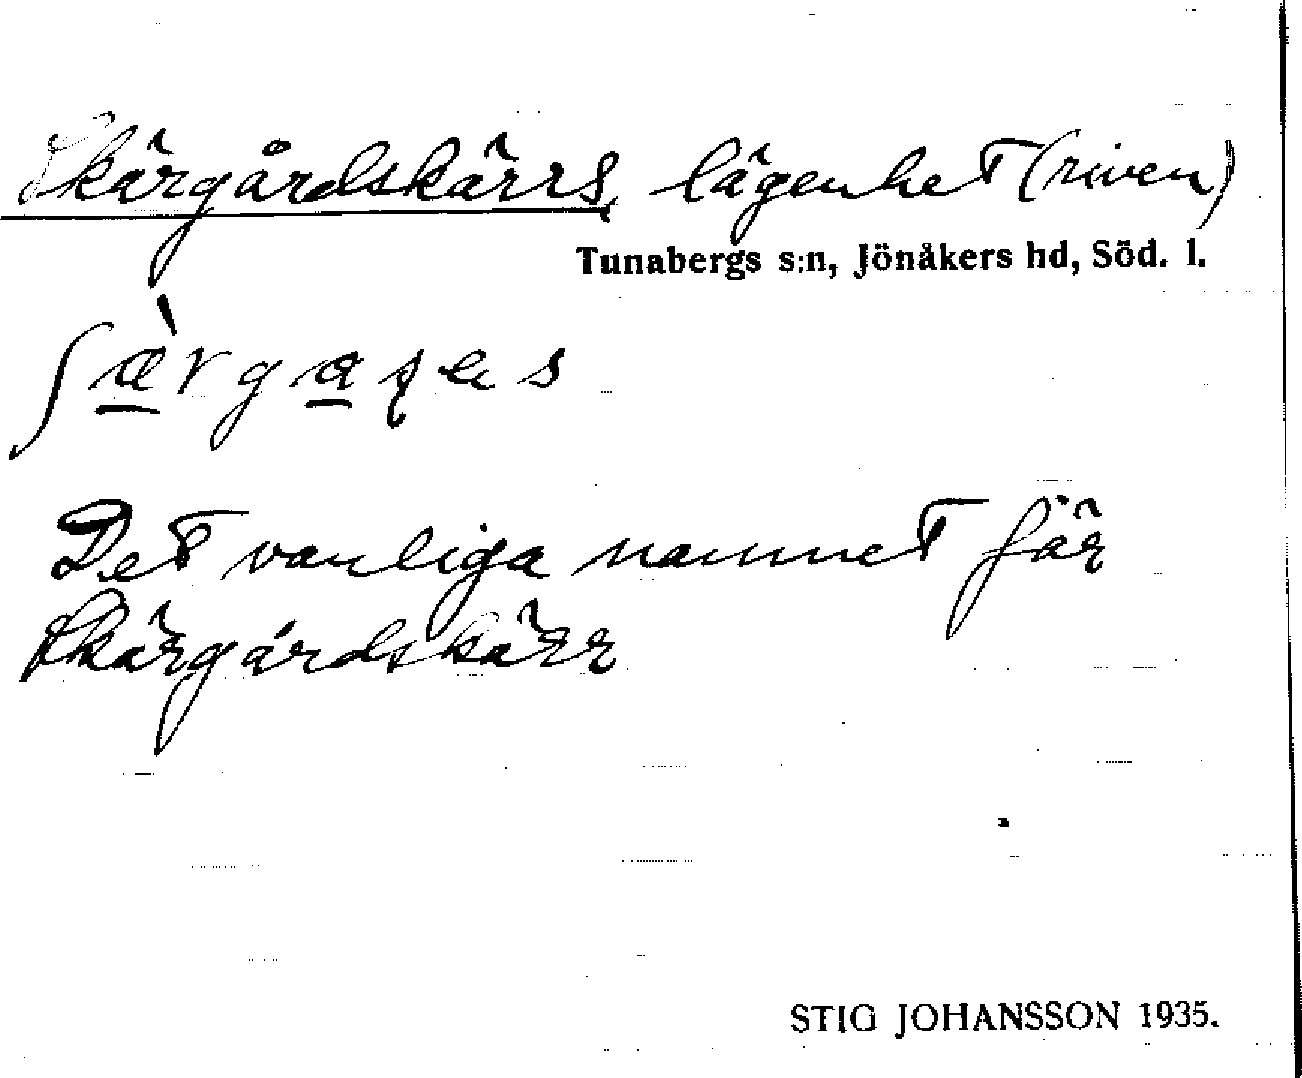 Skärgårdskärrs, lägenhet (riven)
Tunabergs s:n, Jönåkers hd, Söd. l.
Det vanliga namnet för
Skärgårdskärr
STIG JOHANSSON 1935.